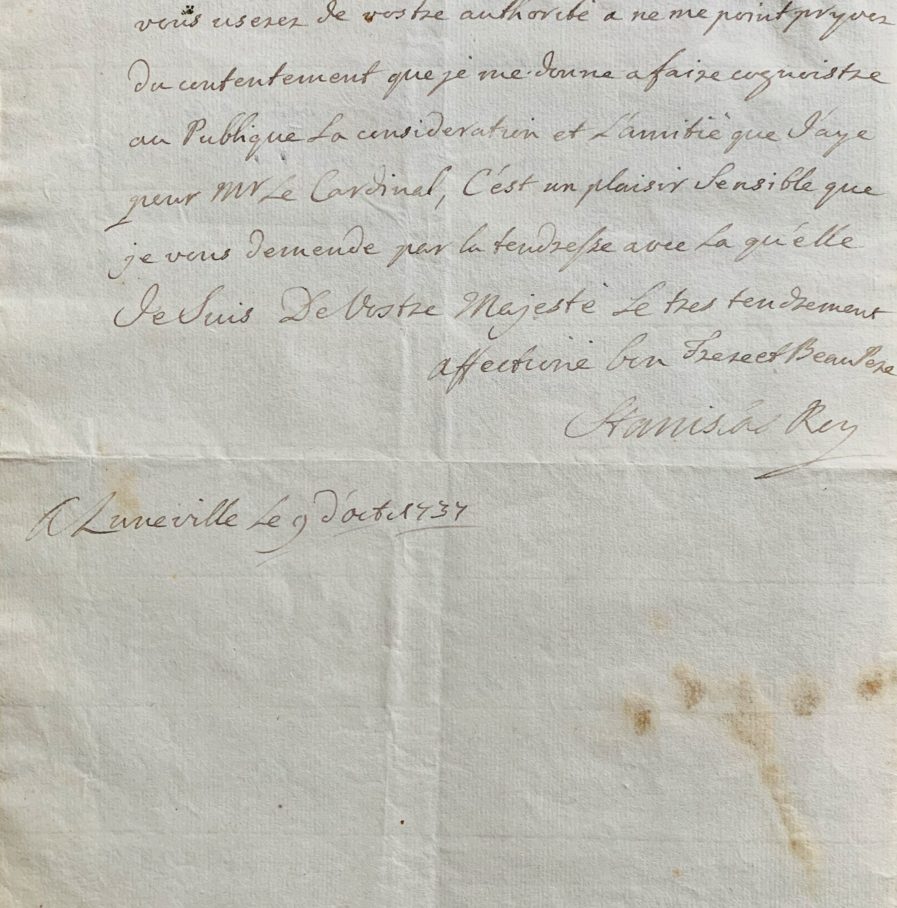 vous userez de vostre authorité a ne me point pryver
du contentement que je me donne a faire cognoistre
au Publique La consideration et L'amitié que J'aye
pour Mr Le Cardinal, C'est un plaisir Sensible que
je vous demende par la tendresse avec La qu'elle
Je Suis De Vostre Majesté Le tres tendrement
affectioné bon Frere et Beau Pere
Stanislas Roy
A Luneville Le 9 d'oct: 1737